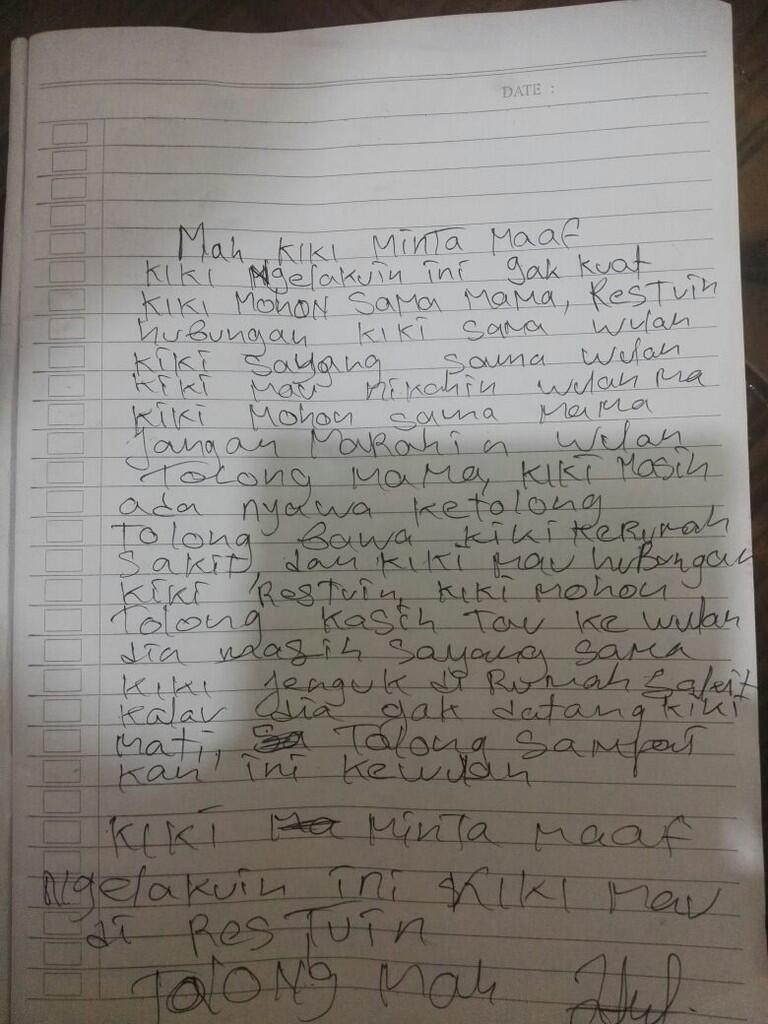 DATE :
Mah KIKI MINTA MAAF
KIKI Ngelakuin ini gak kuat
KIKI MOHON SAMA MAMA, RESTUIN
hubungan KIKI SAMA wulan
KIKI Sayang sama wulan
KIKI mau nikahin wulan Ma
KIKI Mohon sama MAMA
Jangan Marahin wulan
Tolong MAMA, KIKI Masih
ada nyawa ketolong
Tolong Bawa KIKI KeRumah
Sakit, dan KIKI mau huBungan
KIKI RESTUin, KIKI Mohon
Tolong Kasih Tau ke wulan
dia masih sayang sama
KIKI Jenguk di Rumah Sakit
Kalau dia gak datang kiki
mati, Tolong Sampai
kan ini kewulan
KIKI MINTA MAAF
Ngelakuin ini KIKI Mau
di RESTuin
TOLONG Mah